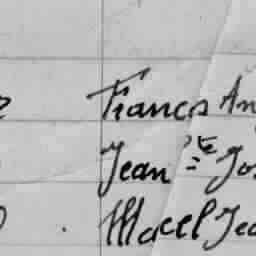 Francs An
Jean =te Jos
Macel Jea